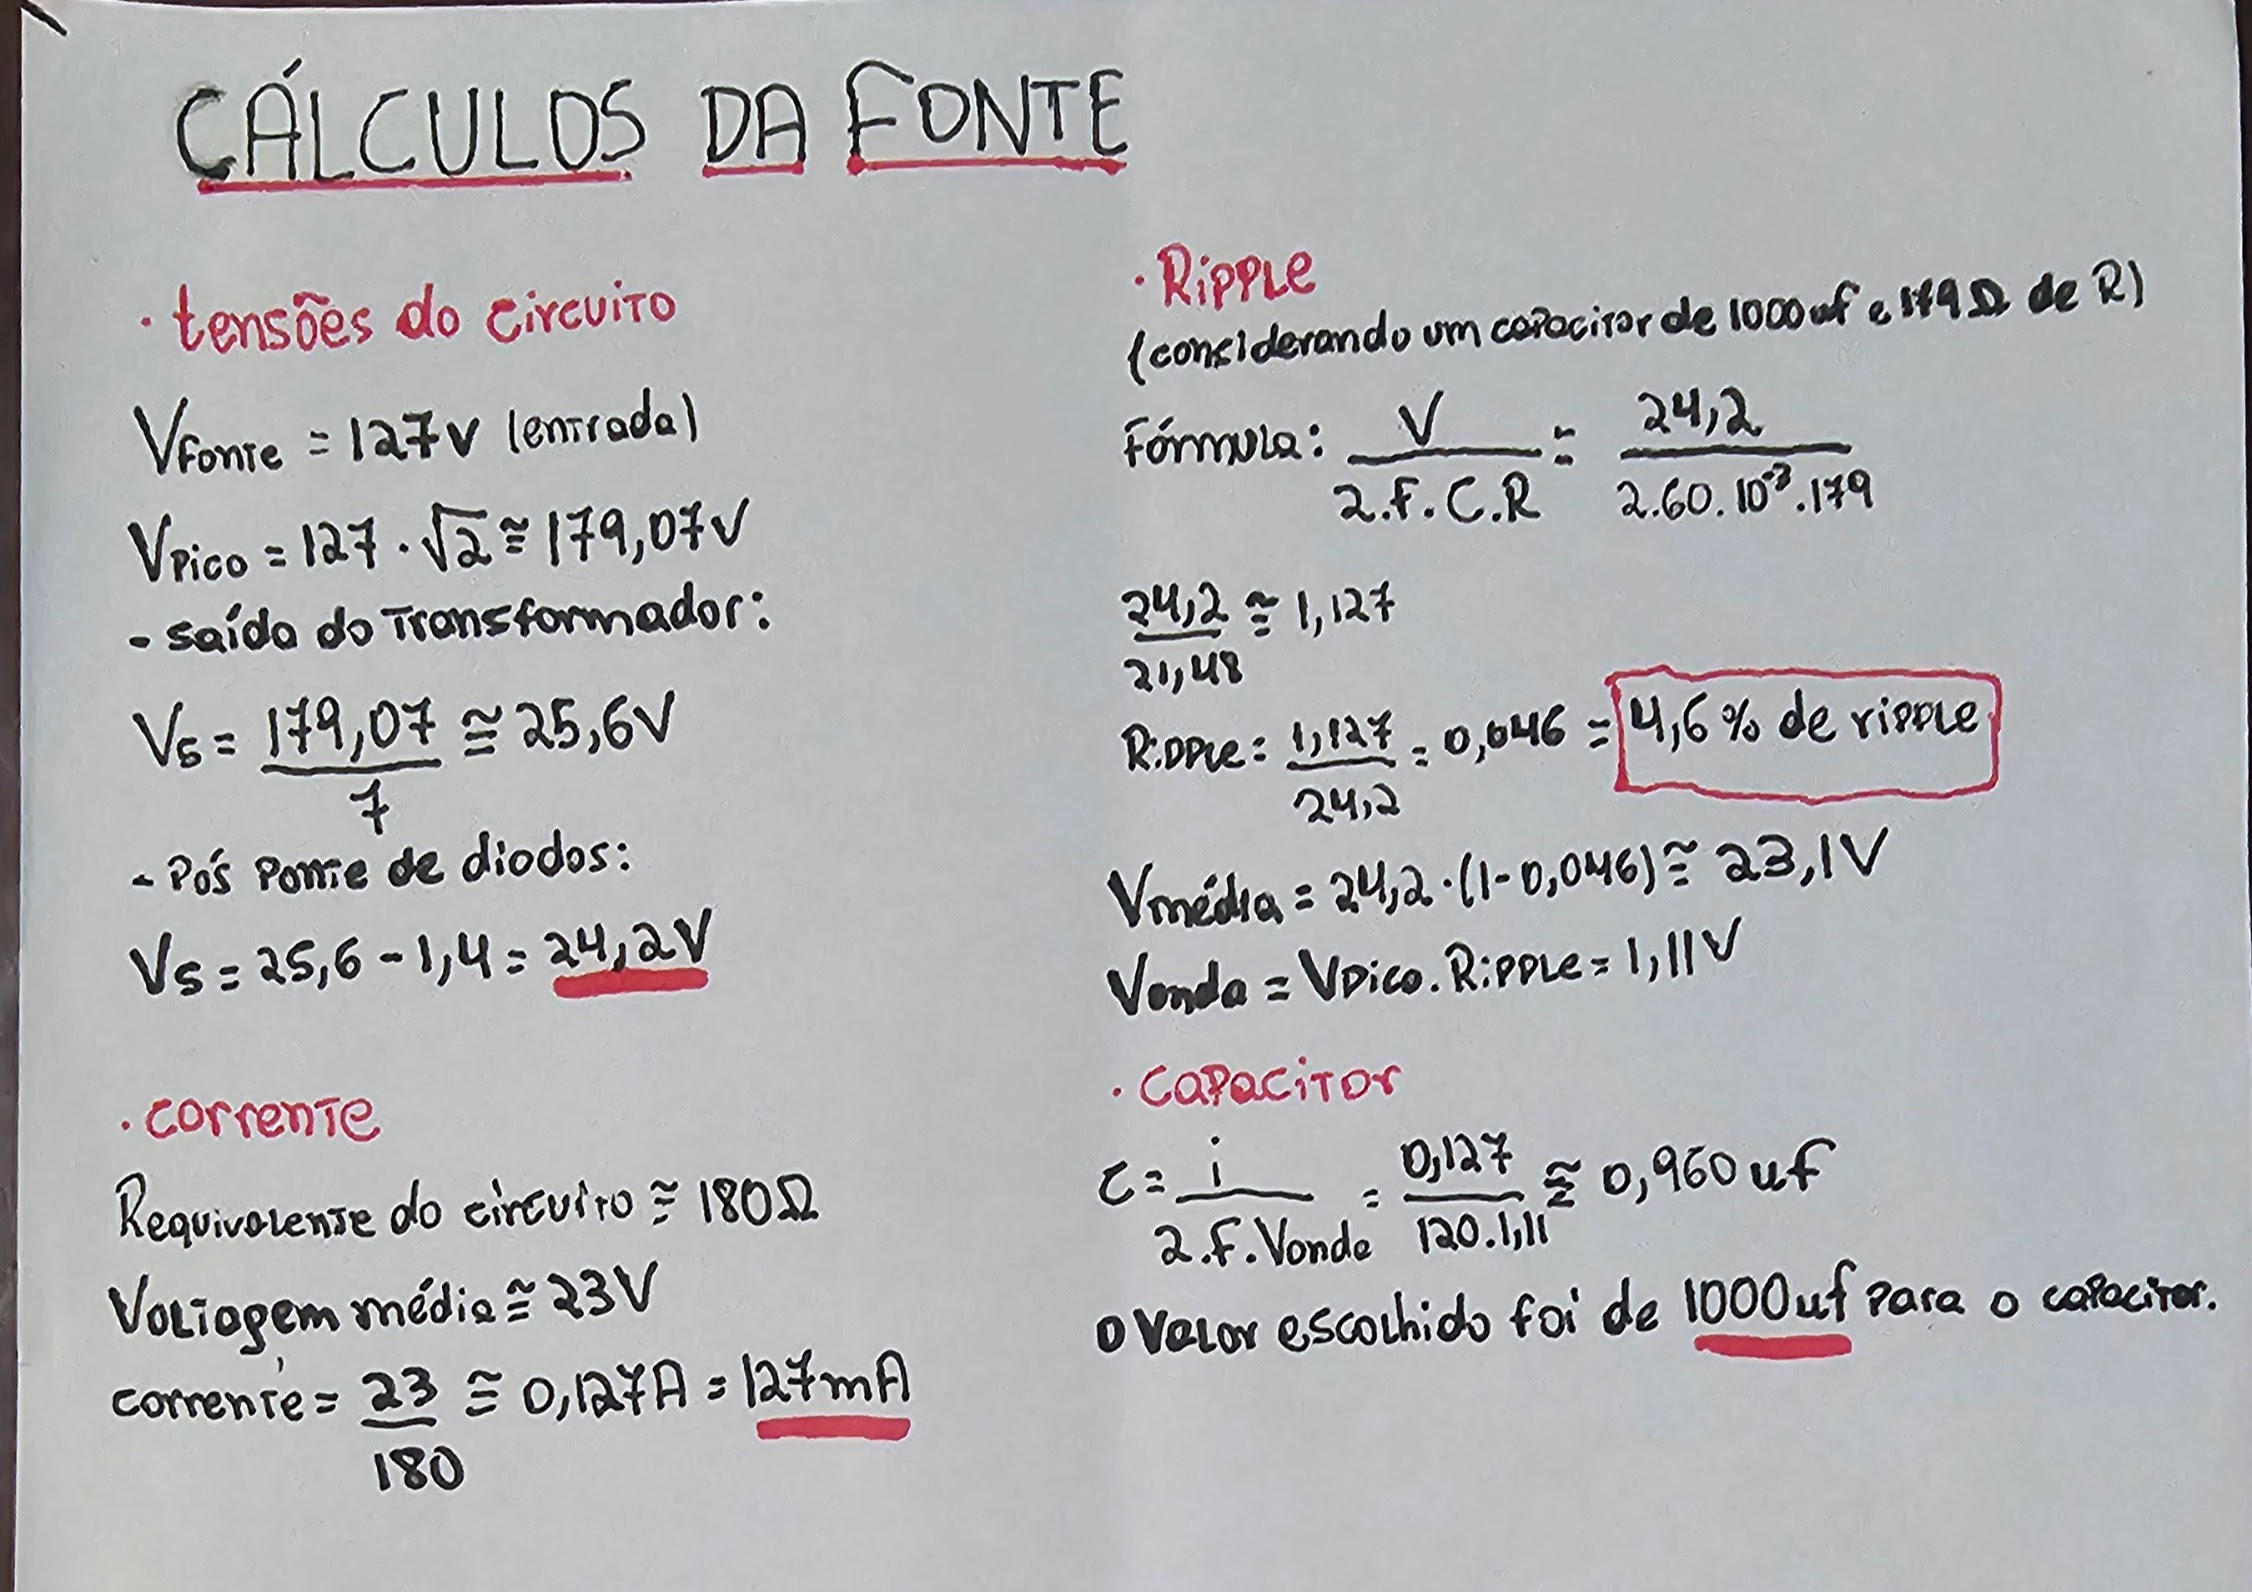 CÁLCULOS DA FONTE
· tensões do circuito
Vfonte = 127V (entrada)
Vpico = 127 · √2 ≅ 179,07V
- saída do transformador:
Vs = 179,07/7 ≅ 25,6V
- Pós Ponte de diodos:
Vs = 25,6 - 1,4 = 24,2V
· corrente
Requivalente do circuito ≅ 180Ω
Voltagem média ≅ 23V
corrente = 23/180 ≅ 0,127A = 127mA
· Ripple
(considerando um capacitor de 1000uf e 179Ω de R)
Fórmula: V/2.F.C.R = 24,2/2.60.10⁻³.179
24,2/21,48 ≅ 1,127
Ripple = 1,127/24,2 = 0,046 = 4,6% de ripple
Vmédia = 24,2 · (1 - 0,046) ≅ 23,1V
Vonda = Vpico . Ripple = 1,11V
· capacitor
C = i/2.F.Vonda = 0,127/120.1,11 ≅ 0,960uf
o valor escolhido foi de 1000uf para o capacitor.